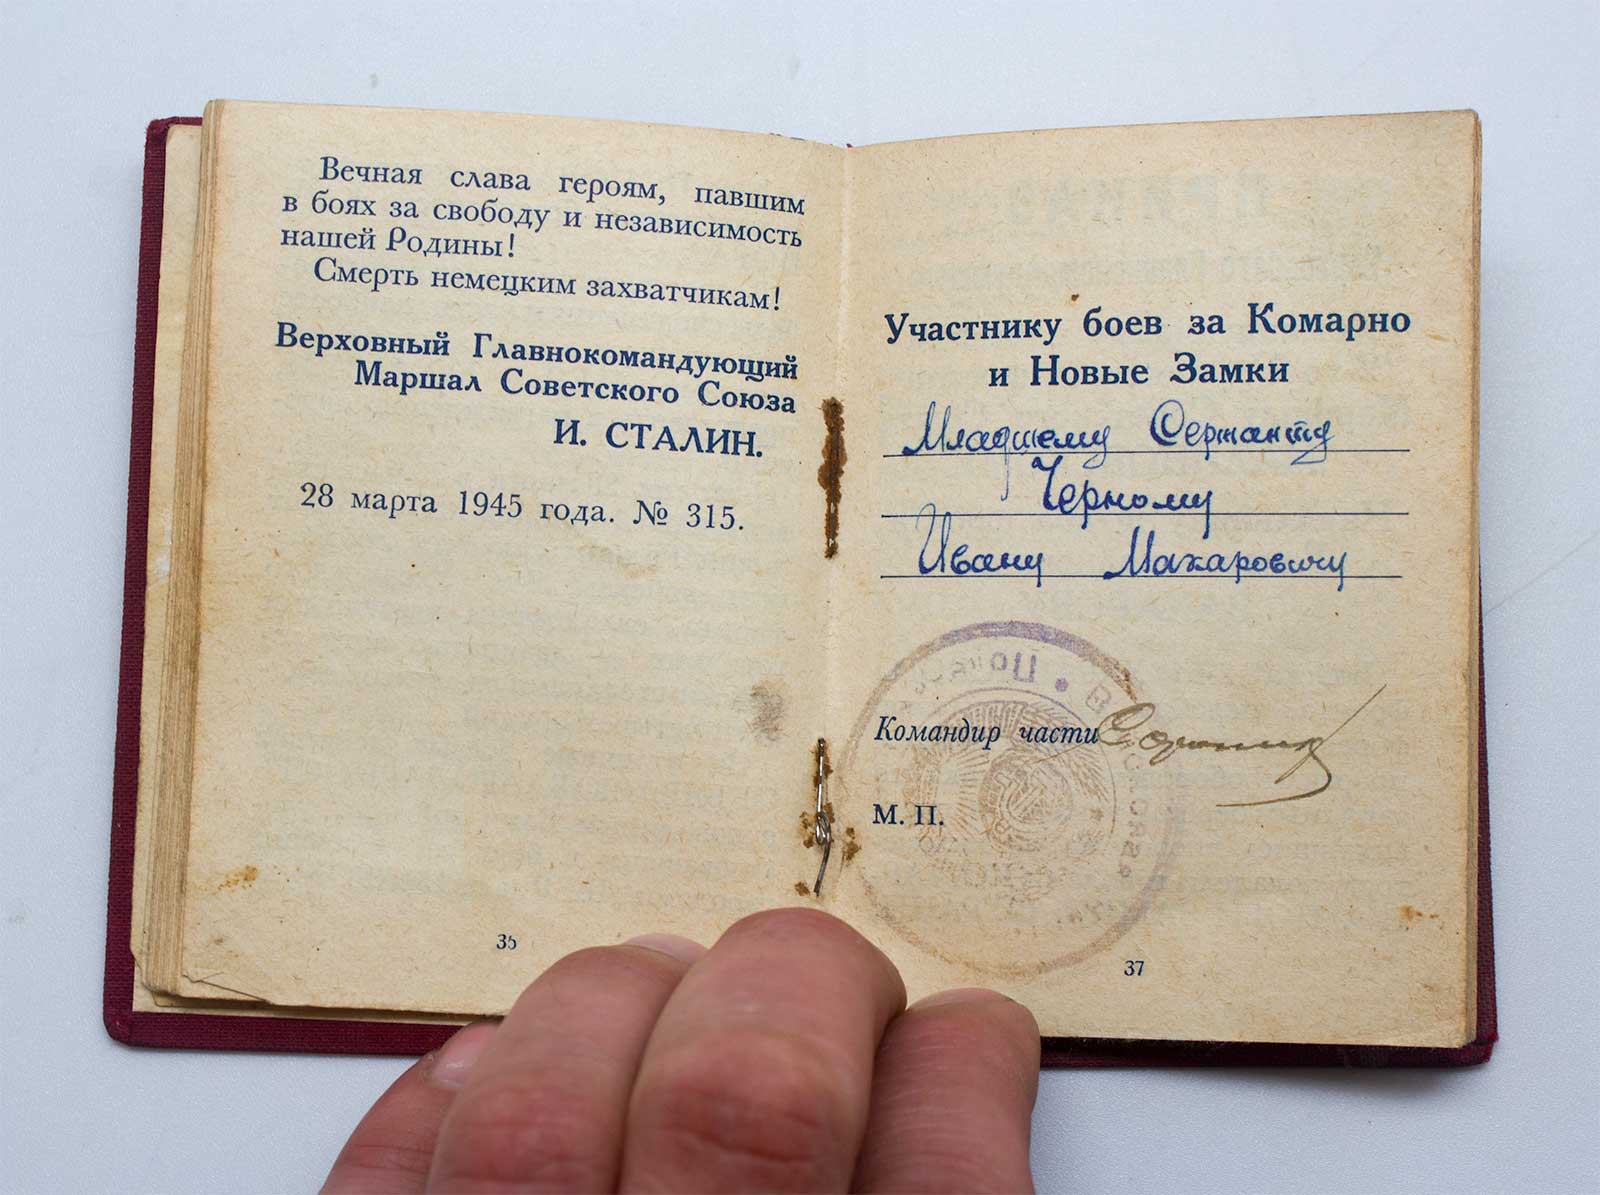 Вечная слава героям, павшим
в боях за свободу и независимость
нашей Родины!
Смерть немецким захватчикам!
Верховный Главнокомандующий
Маршал Советского Союза
И. СТАЛИН.
28 марта 1945 года. № 315.
36
Участнику боев за Комарно
и Новые Замки
Младшему Сержанту
Черному
Ивану Макаровичу
Командир части
М. П.
37